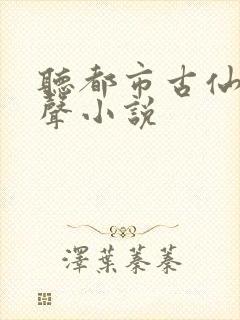 聽都市古仙
聲小説
澤葉蓁蓁